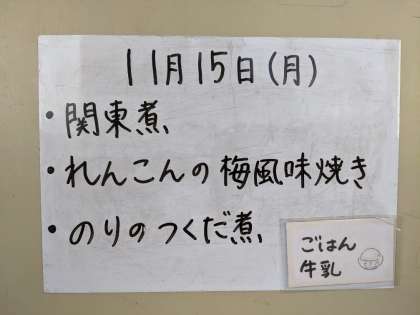 11月15日(月)
・関東煮
・れんこんの梅風味焼き
・のりのつくだ煮
ごはん
牛乳